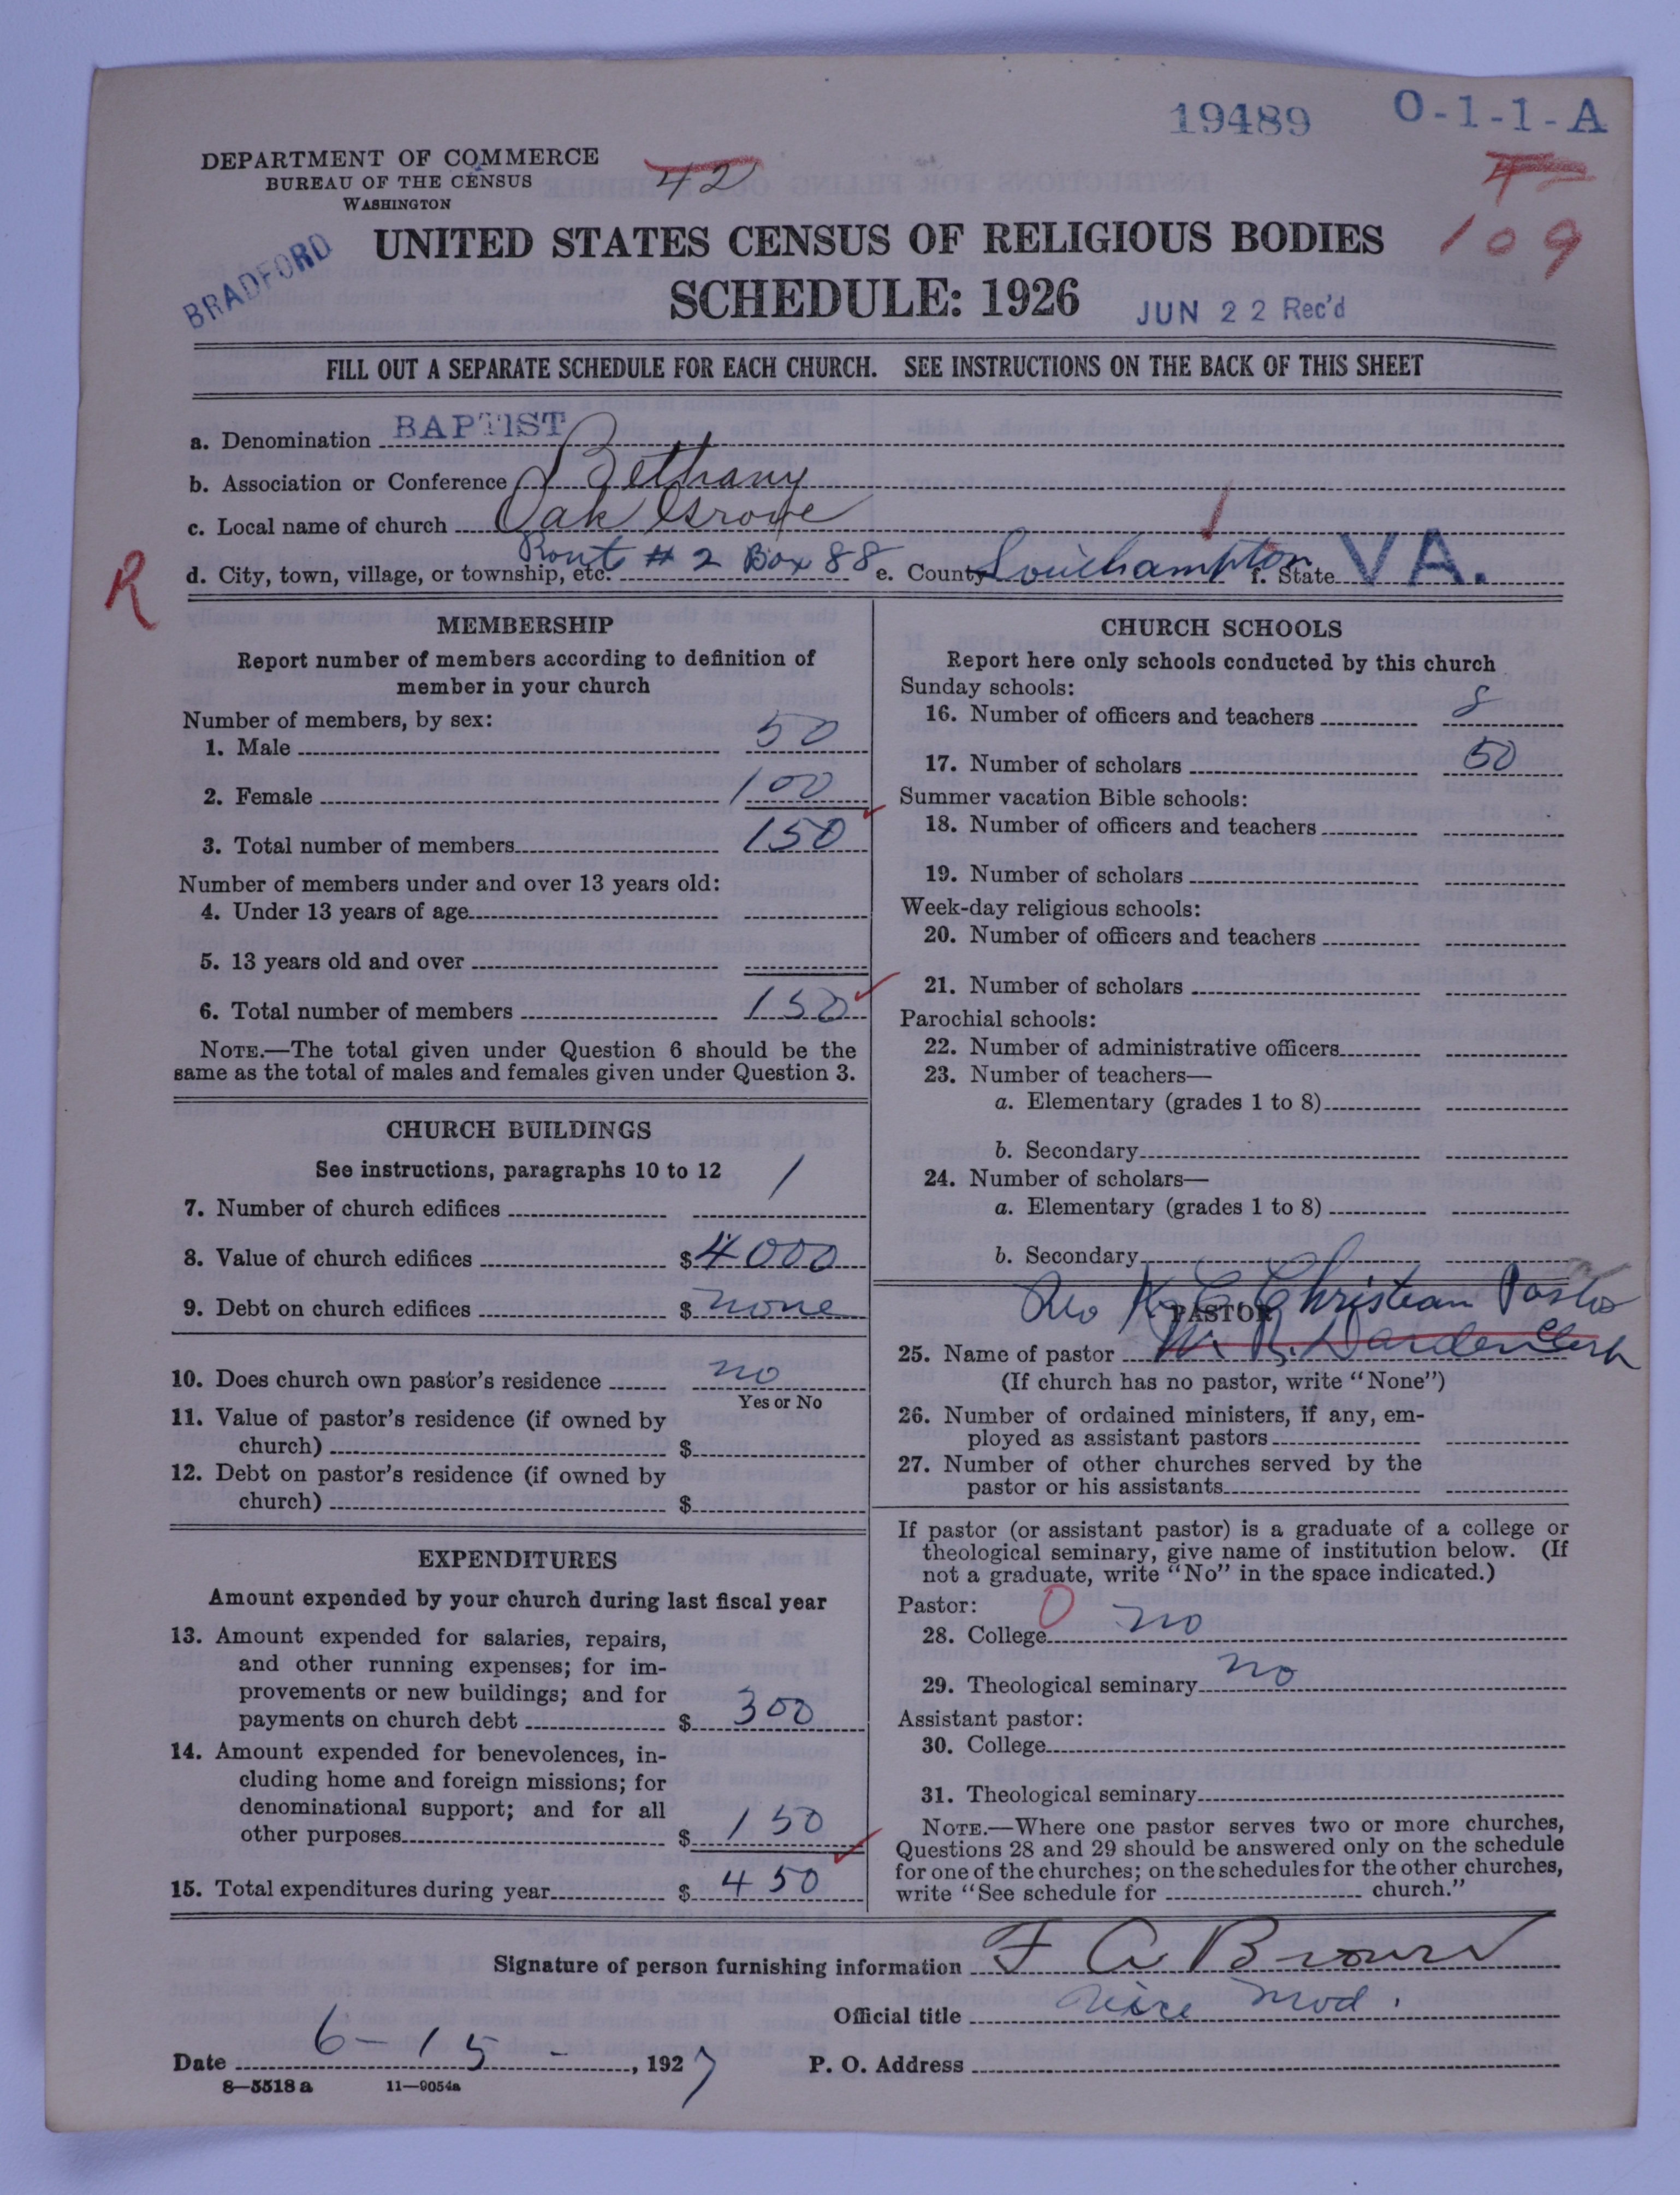 19489 O-1-1-A
DEPARTMENT OF COMMERCE
BUREAU OF THE CENSUS
WASHINGTON
42
42
109
BRADFORD
UNITED STATES CENSUS OF RELIGIOUS BODIES
SCHEDULE: 1926
JUN 22 Rec'd
FILL OUT A SEPARATE SCHEDULE FOR EACH CHURCH. SEE INSTRUCTIONS ON THE BACK OF THIS SHEET
a. Denomination BAPTIST
b. Association or Conference Bethany
c. Local name of church Oak Grove
d. City, town, village, or township, etc. Rout # 2 Box 88 e. County Southampton f. State VA.
R
MEMBERSHIP
Report number of members according to definition of
member in your church
Number of members, by sex:
1. Male 50
2. Female 100
3. Total number of members 150
Number of members under and over 13 years old:
4. Under 13 years of age
5. 13 years old and over
6. Total number of members 150
NOTE.—The total given under Question 6 should be the
same as the total of males and females given under Question 3.
CHURCH BUILDINGS
See instructions, paragraphs 10 to 12
7. Number of church edifices 1
8. Value of church edifices $ 4000
9. Debt on church edifices $ none
10. Does church own pastor's residence no
Yes or No
11. Value of pastor's residence (if owned by
church) $
12. Debt on pastor's residence (if owned by
church) $
EXPENDITURES
Amount expended by your church during last fiscal year
13. Amount expended for salaries, repairs,
and other running expenses; for im-
provements or new buildings; and for
payments on church debt $ 300
14. Amount expended for benevolences, in-
cluding home and foreign missions; for
denominational support; and for all
other purposes $ 150
15. Total expenditures during year $ 450
CHURCH SCHOOLS
Report here only schools conducted by this church
Sunday schools:
16. Number of officers and teachers 8
17. Number of scholars 50
Summer vacation Bible schools:
18. Number of officers and teachers
19. Number of scholars
Week-day religious schools:
20. Number of officers and teachers
21. Number of scholars
Parochial schools:
22. Number of administrative officers
23. Number of teachers—
a. Elementary (grades 1 to 8)
b. Secondary
24. Number of scholars—
a. Elementary (grades 1 to 8)
b. Secondary
Christian Pastor
PASTOR
25. Name of pastor W. R. Darden Clerk
(If church has no pastor, write "None")
26. Number of ordained ministers, if any, em-
ployed as assistant pastors
27. Number of other churches served by the
pastor or his assistants
If pastor (or assistant pastor) is a graduate of a college or
theological seminary, give name of institution below. (If
not a graduate, write "No" in the space indicated.)
Pastor: 0
28. College no
29. Theological seminary no
Assistant pastor:
30. College
31. Theological seminary
NOTE.—Where one pastor serves two or more churches,
Questions 28 and 29 should be answered only on the schedule
for one of the churches; on the schedules for the other churches,
write "See schedule for church."
Signature of person furnishing information F A Brown
Official title Vice Mod.
Date 6-15-, 1927 P. O. Address
8—5518 a 11—9054a